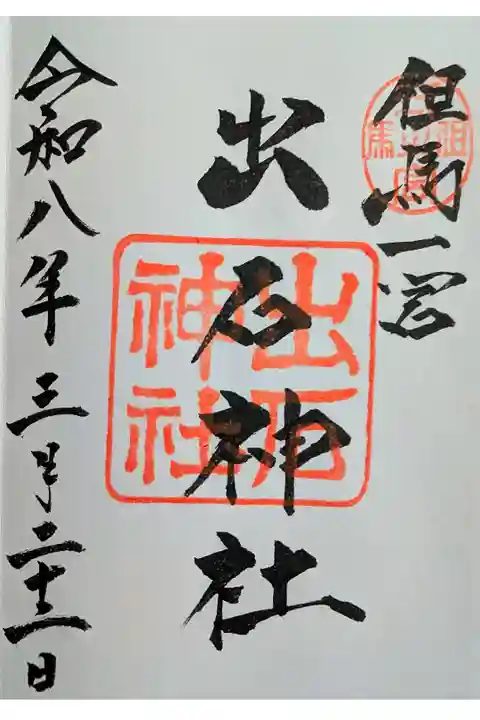 但馬一宮
出石神社
令和八年三月二十二日
出石
神社